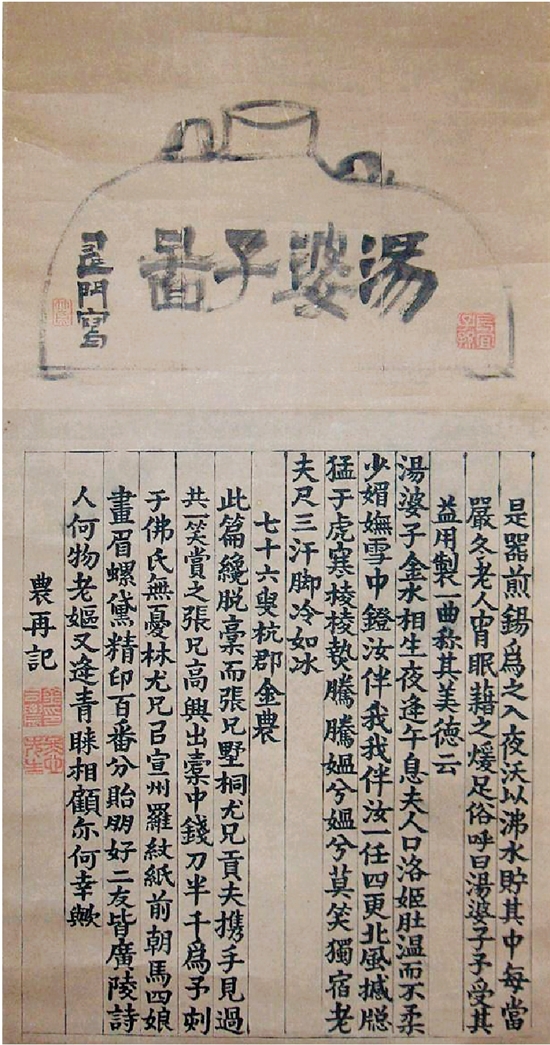 湯婆子啚
壽門寫
長宜子孫
是器煎錫爲之入夜沃以沸水貯其中每當
嚴冬老人甯眠藉之煖足俗呼曰湯婆子予受其
益用製一曲称其美德云
湯婆子金水相生夜逢午息夫人口洛姬肚温而不柔
少媚嫵雪中鐙汝伴我我伴汝一任四更北風撼牎
猛于虎寒棱棱熱騰騰媪兮媪兮莫笑獨宿老
夫尺三汗脚冷如冰
七十六叟杭郡金農
此篇纔脱稾而張兄墅桐尤兄貢夫携手見過
共一笑賞之張兄高興出橐中錢刀半千爲予刻
于佛氏無憂林尤兄㠯宣州羅紋紙前朝馬四娘
畫眉螺黛精印百番分貽朋好二友皆廣陵詩
人何物老嫗又逢青睞相顧亦何幸歟
農再記